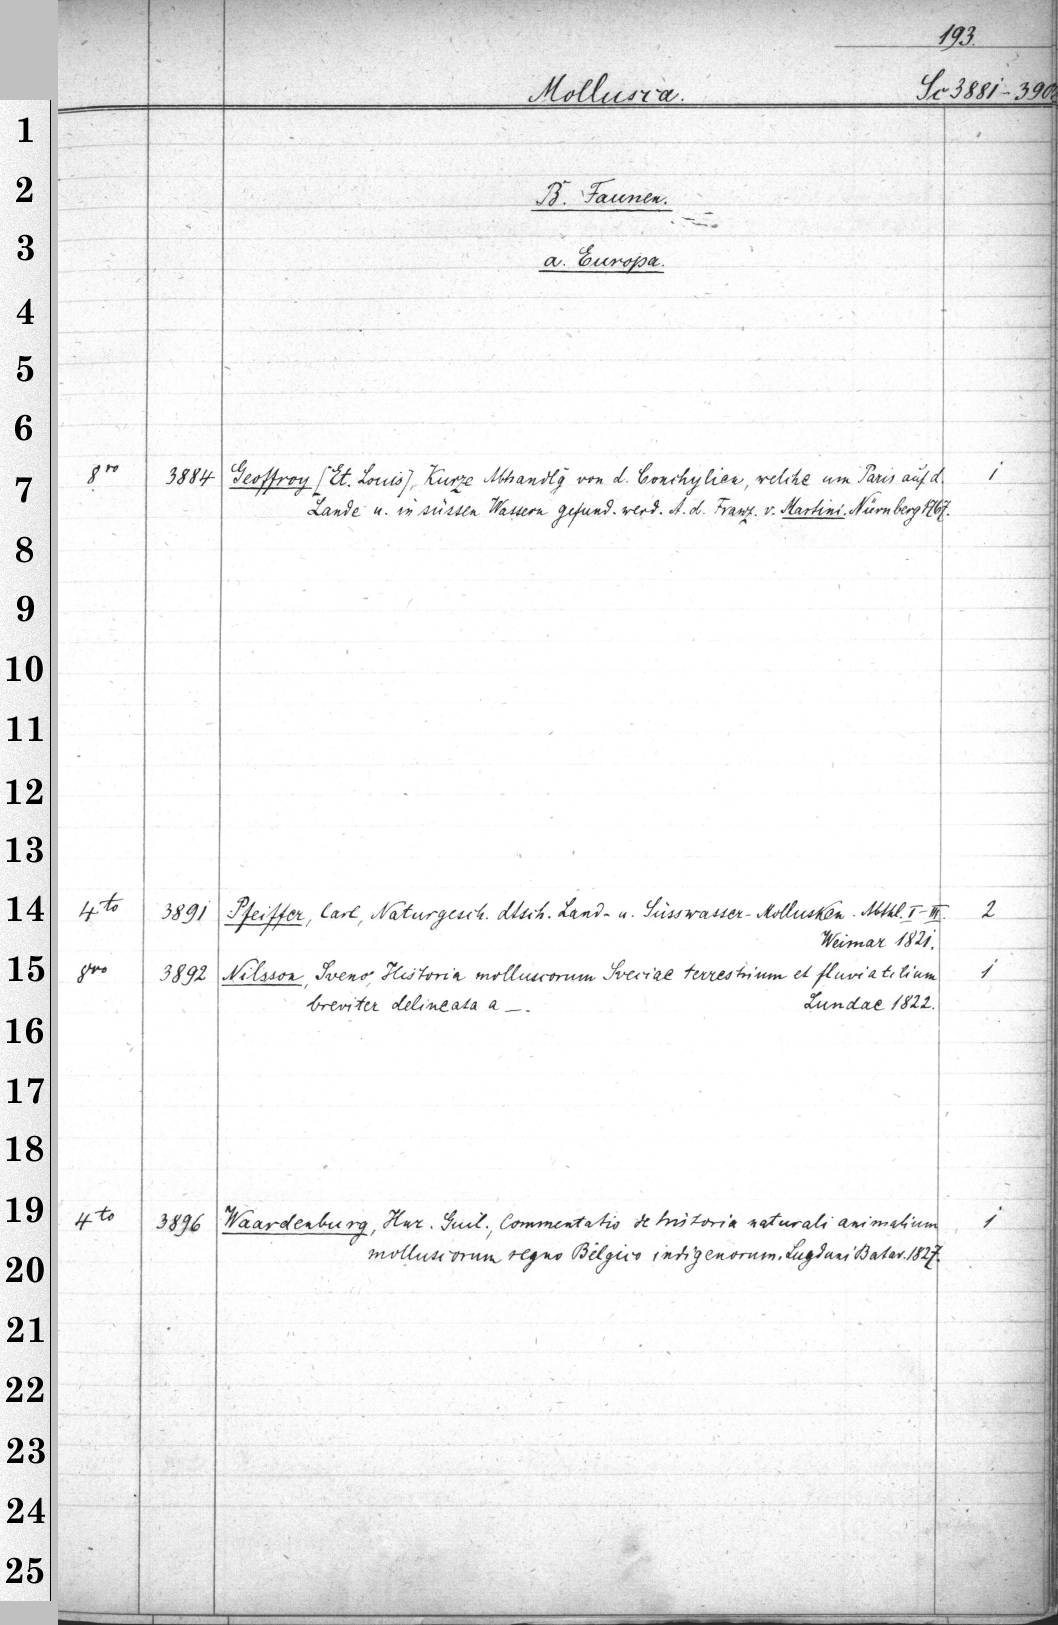 193.
Mollusca. Sc 3881-390
1
B. Faunen.
2
a. Europa.
3
4
5
6
8ro 3884 Geoffroy [Et. Louis], Kurze Abhandlg von d. Conchylien, welche um Paris auf d. 1
7
Lande u. in süssen Wassern gefund. werd. A. d. Franz. v. Martini. Nürnberg 1767.
8
9
10
11
12
13
14 4to 3891 Pfeiffer, Carl, Naturgesch. dtsch. Land- u. Süsswasser-Mollusken. Abthl. I-III. 2
Weimar 1821.
15 8vo 3892 Nilsson, Sveno, Historia molluscorum Sveciae terrestrium et fluviatilium 1
breviter delineata a —. Lundae 1822.
16
17
18
19 4to 3896 Waardenburg, Hnr. Guil., Commentatio de historia naturali animalium 1
molluscorum regno Belgico indigenorum. Lugduni Batav. 1827.
20
21
22
23
24
25